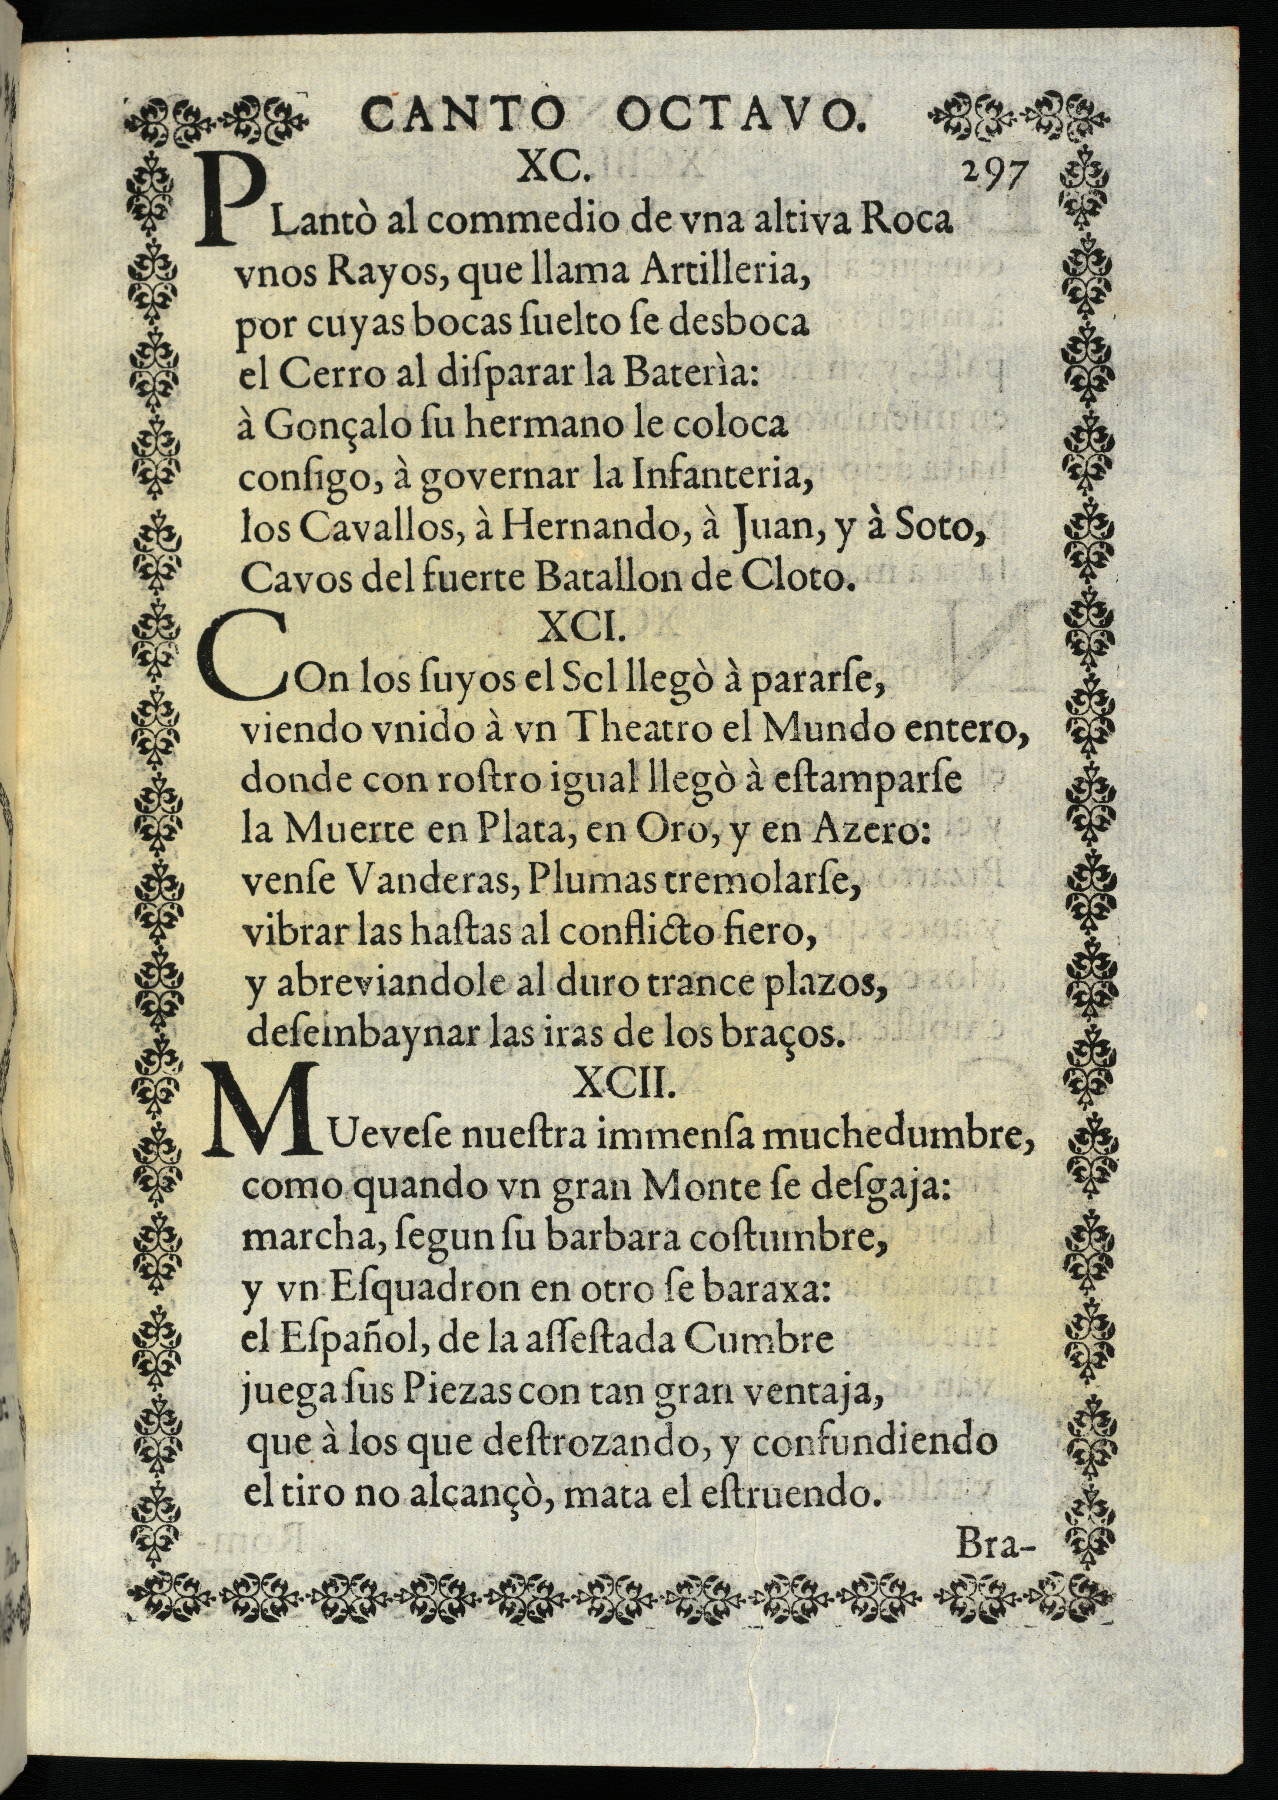 CANTO OCTAVO.
XC. 297
PLantò al commedio de vna altiva Roca
vnos Rayos, que llama Artilleria,
por cuyas bocas ſuelto ſe desboca
el Cerro al diſparar la Baterìa:
à Gonçalo ſu hermano le coloca
conſigo, à governar la Infanteria,
los Cavallos, à Hernando, à Juan, y à Soto,
Cavos del fuerte Batallon de Cloto.
XCI.
COn los ſuyos el Sol llegò à pararſe,
viendo vnido à vn Theatro el Mundo entero,
donde con roſtro igual llegò à eſtamparſe
la Muerte en Plata, en Oro, y en Azero:
venſe Vanderas, Plumas tremolarſe,
vibrar las haſtas al conflicto fiero,
y abreviandole al duro trance plazos,
deſembaynar las iras de los braços.
XCII.
MUeveſe nueſtra immenſa muchedumbre,
como quando vn gran Monte ſe deſgaja:
marcha, ſegun ſu barbara coſtumbre,
y vn Eſquadron en otro ſe baraxa:
el Eſpañol, de la aſſeſtada Cumbre
juega ſus Piezas con tan gran ventaja,
que à los que deſtrozando, y confundiendo
el tiro no alcançò, mata el eſtruendo.
Bra-